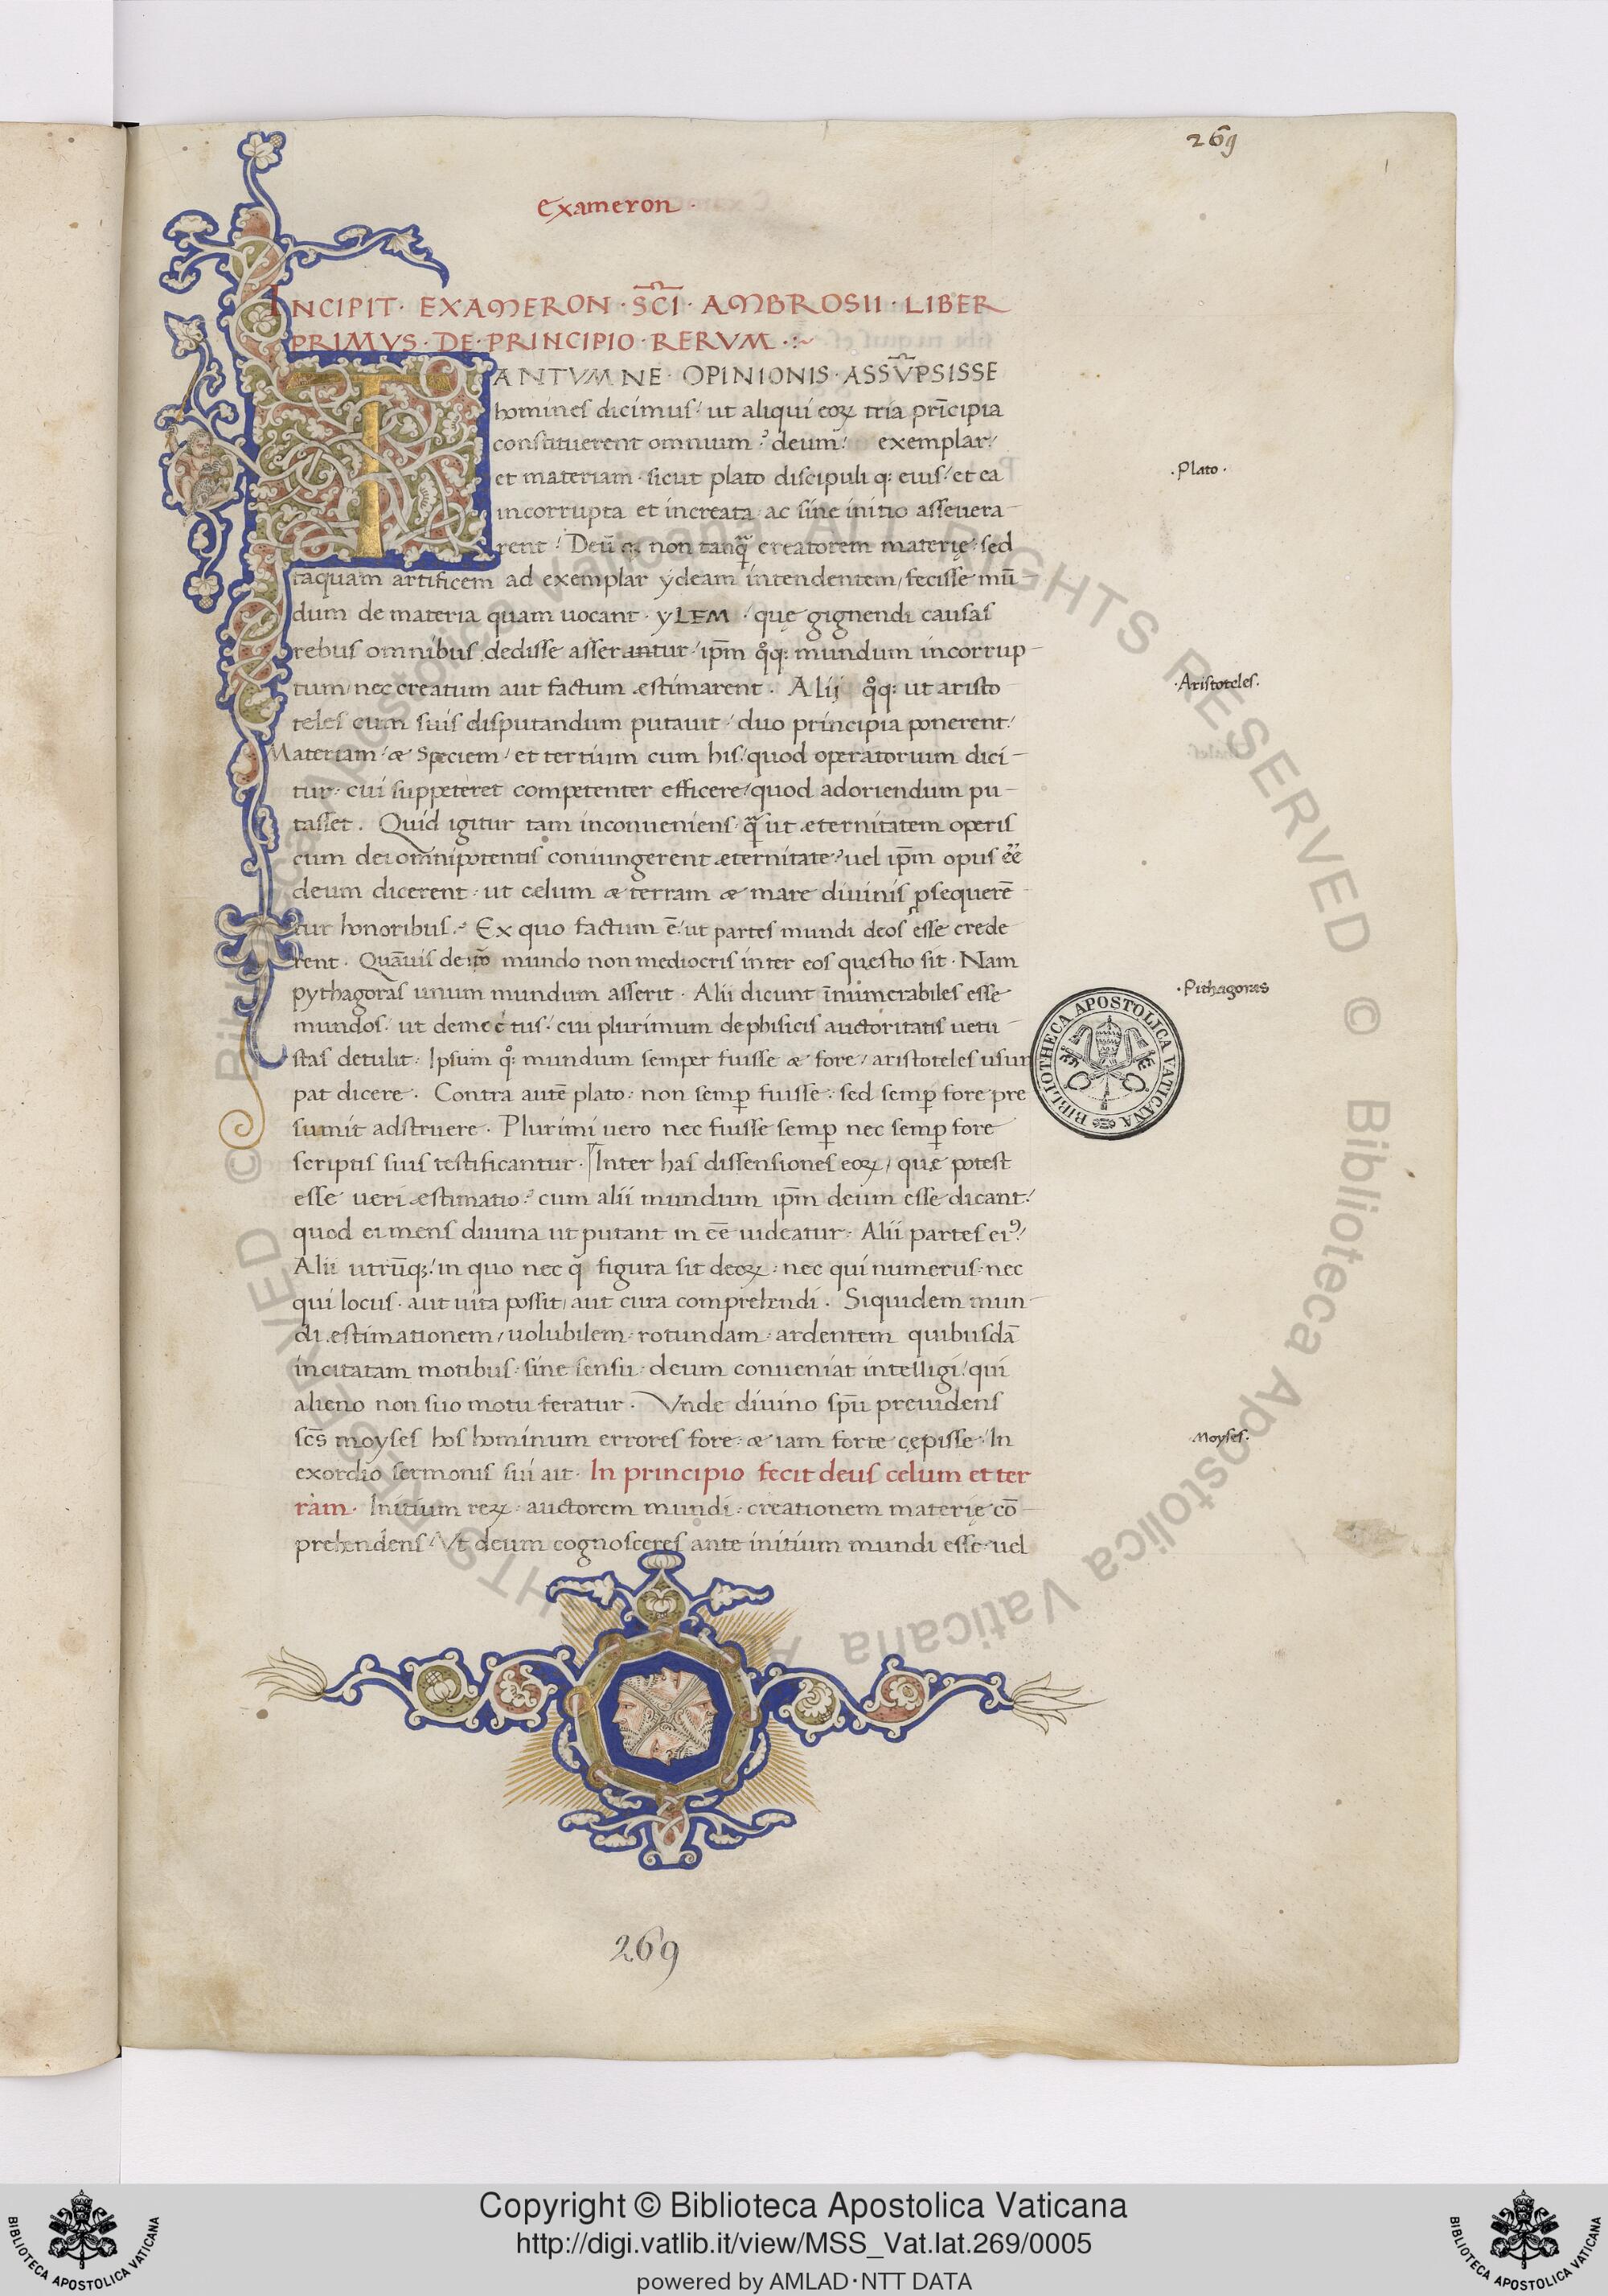 269
1
Exameron ·
INCIPIT · EXAMERON · SC̅I · AMBROSII · LIBER
PRIMVS · DE · PRINCIPIO · RERVM · :~
TANTVMNE · OPINIONIS · ASSV̅PSISSE
homines dicimus / ut aliqui eoꝝ tria prīcipia
constituerent omnium ? deum / exemplar /
et materiam · sicut plato discipuli q: eius / et ea
· Plato ·
incorrupta et increata · ac sine initio asseuera-
rent / Deū non tanq̄ creatorem materię · sed
taquam artificem ad exemplar ydeam intendentem / fecisse mū-
dum de materia quam uocant · yLEM · quę gignendi causas
rebus omnibus dedisse asserantur / ip̄m qͦq: mundum incorrup-
tum / nec creatum aut factum æstimarent · Alij qͦq: ut aristo
· Aristoteles ·
teles cum suis disputandum putauit / duo principia ponerent /
Materiam / & Speciem / et tertium cum his / quod operatorium dici-
tur · cui suppeteret competenter efficere / quod adoriendum pu-
tasset . Quid igitur tam inconueniens · q̄ ut æternitatem operis
cum dei omnipotentis coniungerent æternitate ? uel ip̄m opus ee̅
deum dicerent · ut celum & terram & mare diuinis ꝑsequerē-
tur honoribus · Ex quo factum ē / ut partes mundi deos esse crede-
rent · Quāuis de mundo non mediocris inter eos questio sit · Nam
pythagoras unum mundum asserit · Alii dicunt īnumerabiles esse
· Pithagoras
mundos · ut demectus / cui plurimum de phisicis auctoritatis uetu-
stas detulit · Ipsum qͦ: mundum semper fuisse & fore / aristoteles usur
pat dicere · Contra autē plato · non semꝑ fuisse · sed semꝑ fore pre
sumit adstruere · Plurimi uero nec fuisse semꝑ nec semꝑ fore
scriptis suis testificantur · Inter has dissensiones eoꝝ / quæ potest
esse ueri æstimatio ? cum alii mundum ip̄m deum esse dicant /
quod ei mens diuina ut putant in ee̅ uideatur · Alii partes eiꝰ /
Alii utrūqꝫ / in quo nec q̄ figura sit deoꝝ · nec qui numerus · nec
qui locus · aut uita possit / aut cura comprehendi · Siquidem mun-
di æstimationem / uolubilem · rotundam · ardentem quibusdā
incitatam motibus · sine sensu · deum conueniat intelligi / qui
alieno non suo motu feratur · Vnde diuino sp̄u preuidens
sc̄s moyses hos hominum errores fore · & iam forte cępisse / In
Moyses ·
exordio sermonis sui ait · In principio fecit deus celum et ter
ram · Initium reꝝ · auctorem mundi · creationem materię cō-
prehendens / Vt deum cognosceres ante initium mundi esse · uel
BIBLIOTHECA APOSTOLICA VATICANA
269
© Biblioteca Apostolica Vaticana ALL RIGHTS RESERVED © Biblioteca Apostolica Vaticana ALL RIGHTS RESERVED
BIBLIOTECA APOSTOLICA VATICANA
Copyright © Biblioteca Apostolica Vaticana
http://digi.vatlib.it/view/MSS_Vat.lat.269/0005
powered by AMLAD·NTT DATA
BIBLIOTECA APOSTOLICA VATICANA